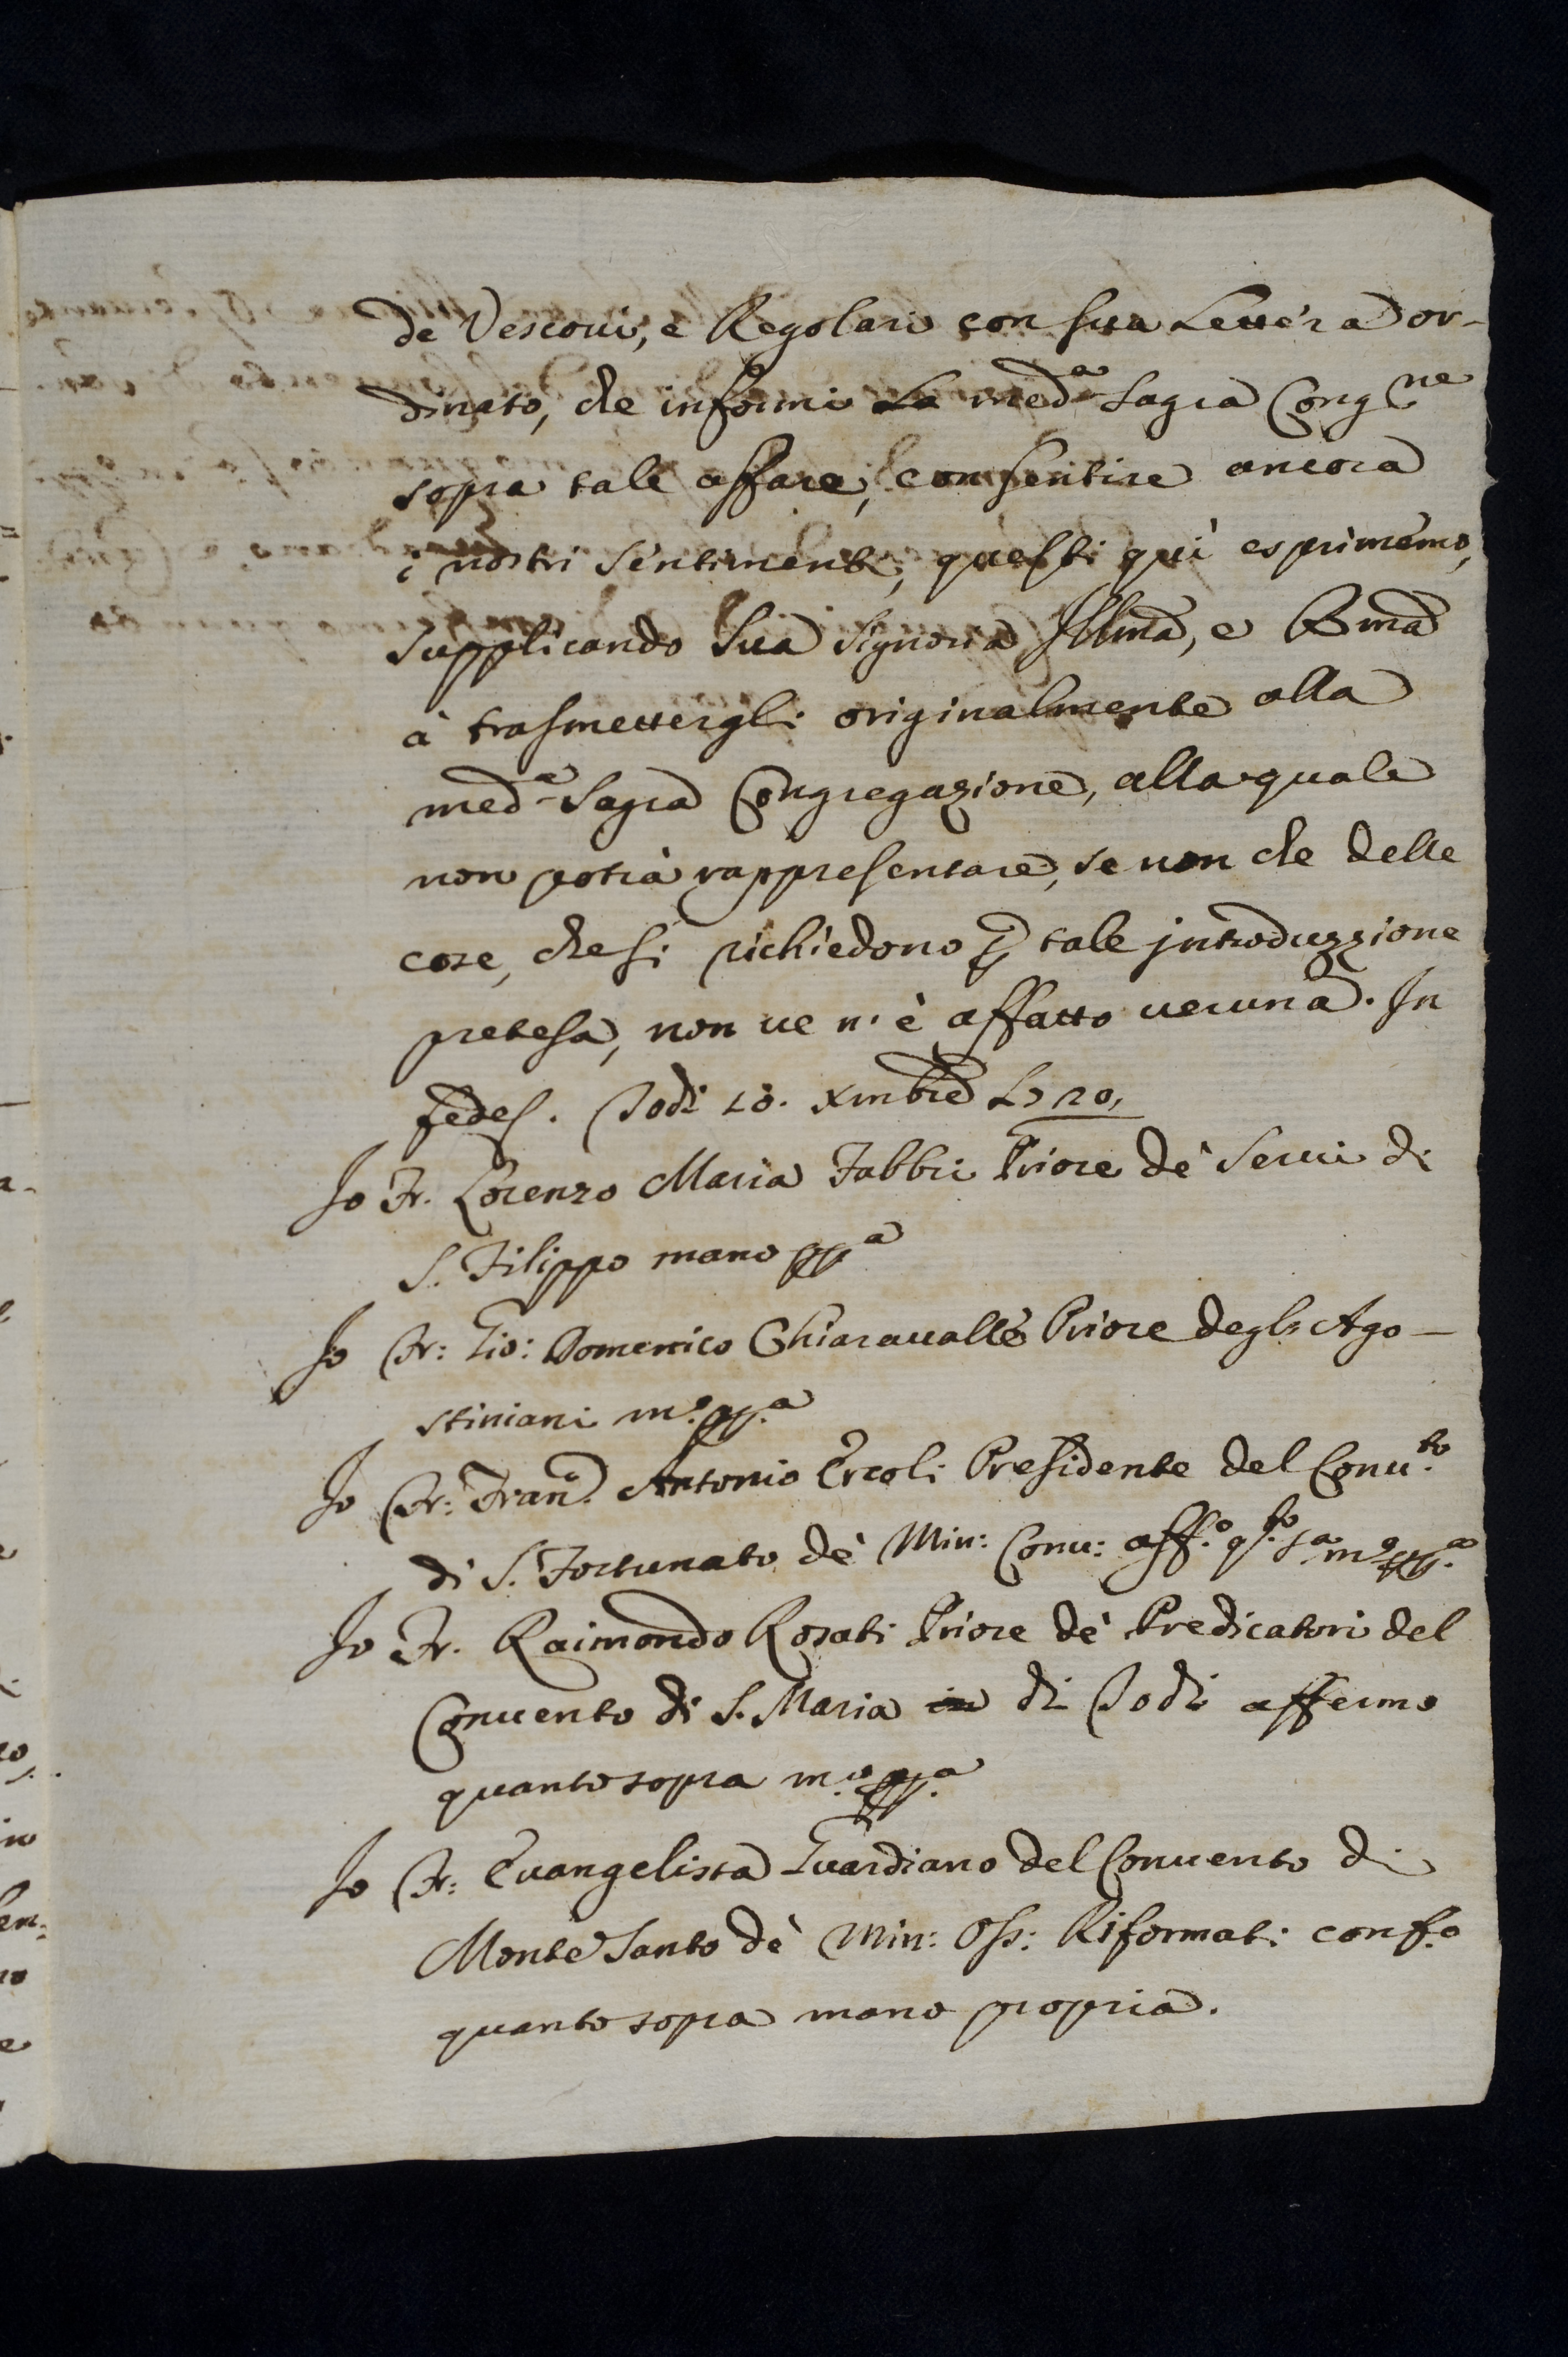 de Vescoui, e Regolari con sua Lettera or-
dinato, che informi La med.ª Sagra Cong.ne
sopra tale affare, con sentire ancora
i nostri sentimenti, questi quì esprimemo,
supplicando Sua Signoria Illma, e Rma
à trasmettergli originalmente alla
med.ª Sagra Congregazione, alla quale
non potrà rappresentare, se non che delle
cose, che si richiedono p tale introduzzione
pretesa, non ue n'è affatto ueruna. In
fede. Todi 10. xmbre 1720,
Io Fr. Lorenzo Maria Fabbri Priore de' Serui di
S. Filippo mano ppª
Io Fr: Gio: Domenico Chiaraualle Priore degli Ago-
stiniani m.º pp.ª
Io Fr: Fran.º Antonio Ercoli Presidente del Conu.to
di S. Fortunato de' Min: Conu: aff.º q.to s.ª m.º pp.ª
Io Fr. Raimondo Rosati Priore de' Predicatori del
Conuento di S. Maria in di Todi affermo
quanto sopra m.º pp.ª
Io Fr: Euangelista Guardiano del Conuento di
Monte Santo de' Min: Oss: Riformati conf.º
quanto sopra mano propria.